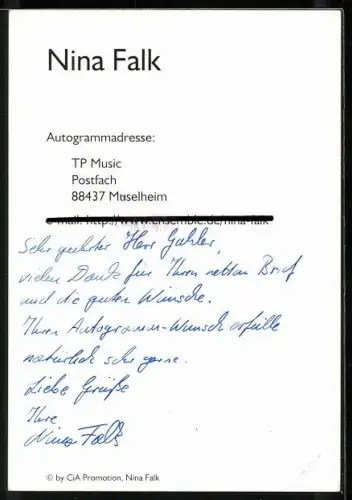 Nina Falk
Autogrammadresse:
TP Music
Postfach
88437 Muselheim
e-mail: http://www.ensemble.de/nina-falk
Sehr geehrter Herr
vielen Dank für Ihren netten Brief
und die guten Wünsche.
Ihren Autogramm-Wunsch erfülle
natürlich sehr gerne.
Liebe Grüße
Ihre
Nina Falk
© by CiA Promotion, Nina Falk